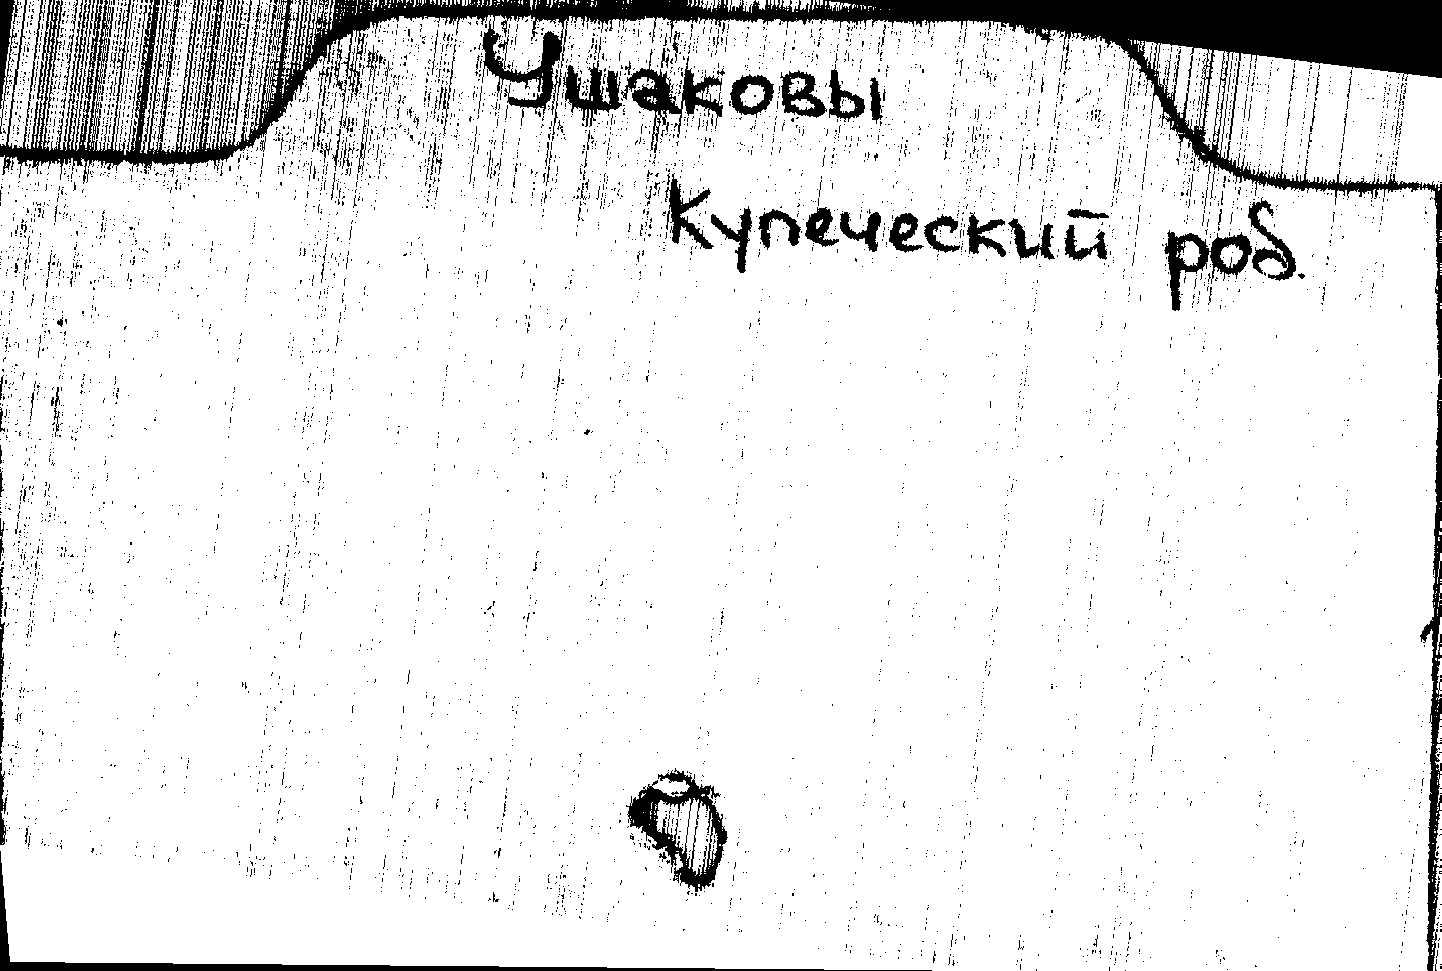 Ушаковы
Купеческий род.